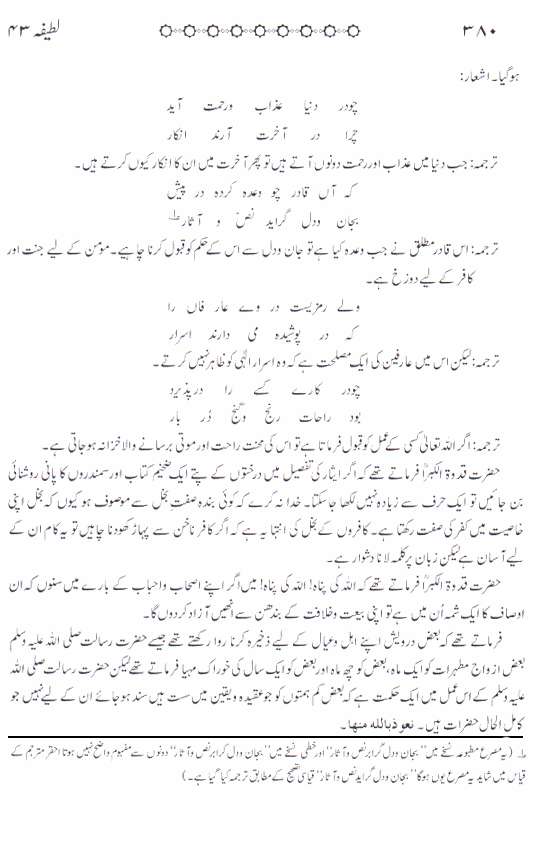 ۳۸۰ لطیفہ ۴۳
ہوگیا۔ اشعار:
چودر دنیا عذاب ورحمت آید
چرا در آخرت آرند انکار
ترجمہ: جب دنیا میں عذاب اور رحمت دونوں آتے ہیں تو پھر آخرت میں ان کا انکار کیوں کرتے ہیں۔
کہ آں قادر چو وعدہ کردہ در پیش
بجان ودل گراید نصّ و آثار ؎۱
ترجمہ: اس قادر مطلق نے جب وعدہ کیا ہے تو جان ودل سے اس کے حکم کو قبول کرنا چاہیے۔ مومن کے لیے جنت اور
کافر کے لیے دوزخ ہے۔
ولے رمزیست در وے عار فاں را
کہ در پوشیدہ می دارند اسرار
ترجمہ: لیکن اس میں عارفین کی ایک مصلحت ہے کہ وہ اسرار الٰہی کو ظاہر نہیں کرتے۔
چودر کارے کسے را در پذیرد
بود راحات رنج وگنج دُر بار
ترجمہ: اگر اللہ تعالیٰ کسی کے عمل کو قبول فرماتا ہے تو اس کی محنت راحت اور موتی برسانے والا خزانہ ہوجاتی ہے۔
حضرت قدوۃ الکبراؒ فرماتے تھے کہ اگر ایثار کی تفصیل میں درختوں کے پتے ایک ضخیم کتاب اور سمندروں کا پانی روشنائی
بن جائیں تو ایک حرف سے زیادہ نہیں لکھا جاسکتا۔ خدا نہ کرے کہ کوئی بندہ صفتِ بخل سے موصوف ہو کیوں کہ بخل اپنی
خاصیت میں کفر کی صفت رکھتا ہے۔ کافروں کے بخل کی انتہا یہ ہے کہ اگر کافر ناخن سے پہاڑ کھودنا چاہیں تو یہ کام ان کے
لیے آسان ہے لیکن زبان پر کلمہ لانا دشوار ہے۔
حضرت قدوۃ الکبراؒ فرماتے تھے کہ اللہ کی پناہ! اللہ کی پناہ! میں اگر اپنے اصحاب واحباب کے بارے میں سنوں کہ ان
اوصاف کا ایک شمہ اُن میں ہے تو اپنی بیعت وخلافت کے بندھن سے انھیں آزاد کردوں گا۔
فرماتے تھے کہ بعض درویش اپنے اہل وعیال کے لیے ذخیرہ کرنا روا رکھتے تھے جیسے حضرت رسالت صلی اللہ علیہ وسلم
بعض ازواج مطہرات کو ایک ماہ، بعض کو چھ ماہ اور بعض کو ایک سال کی خوراک مہیا فرماتے تھے لیکن حضرت رسالت صلی اللہ
علیہ وسلم کے اس عمل میں ایک حکمت ہے کہ بعض کم ہمتوں کو جو عقیدہ ویقین میں سست ہیں سند ہوجائے ان کے لیے نہیں جو
کامل الحال حضرات ہیں۔ نعوذبالله منها۔
؎۱ (یہ مصرع مطبوعہ نسخے میں ’’بجان ودل گرابر نص وآثار‘‘ اور خطی نسخے میں ’’بجان ودل کرابر نص وآثار‘‘ دونوں سے مفہوم واضح نہیں ہوتا احقر مترجم کے
قیاس میں شاید یہ مصرع یوں ہوگا ’’بجان ودل گراید نص وآثار‘‘ قیاسی تصحیح کے مطابق ترجمہ کیا گیا ہے۔)